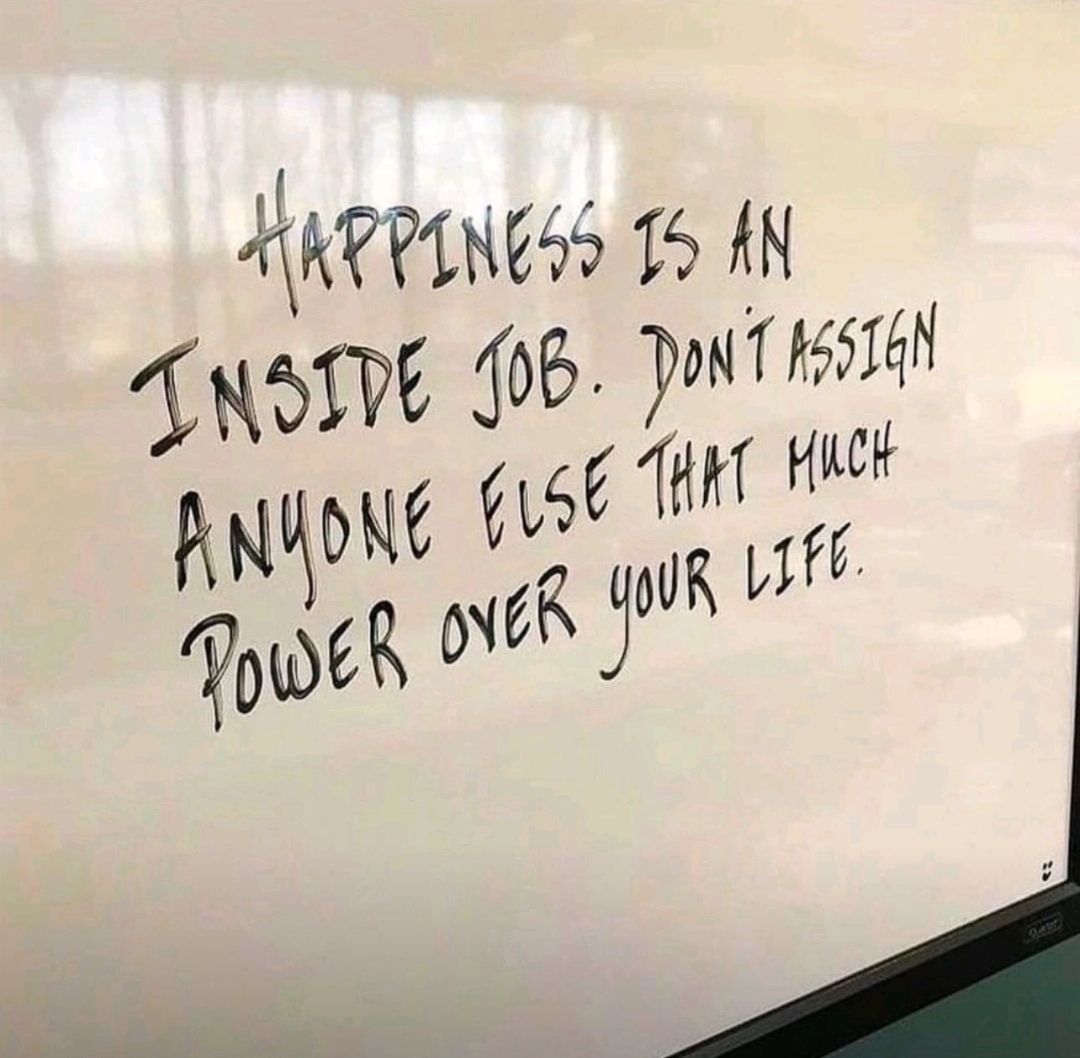 HAPPINESS IS AN
INSIDE JOB. DON'T ASSIGN
ANYONE ELSE THAT MUCH
POWER OVER YOUR LIFE.
Quartet